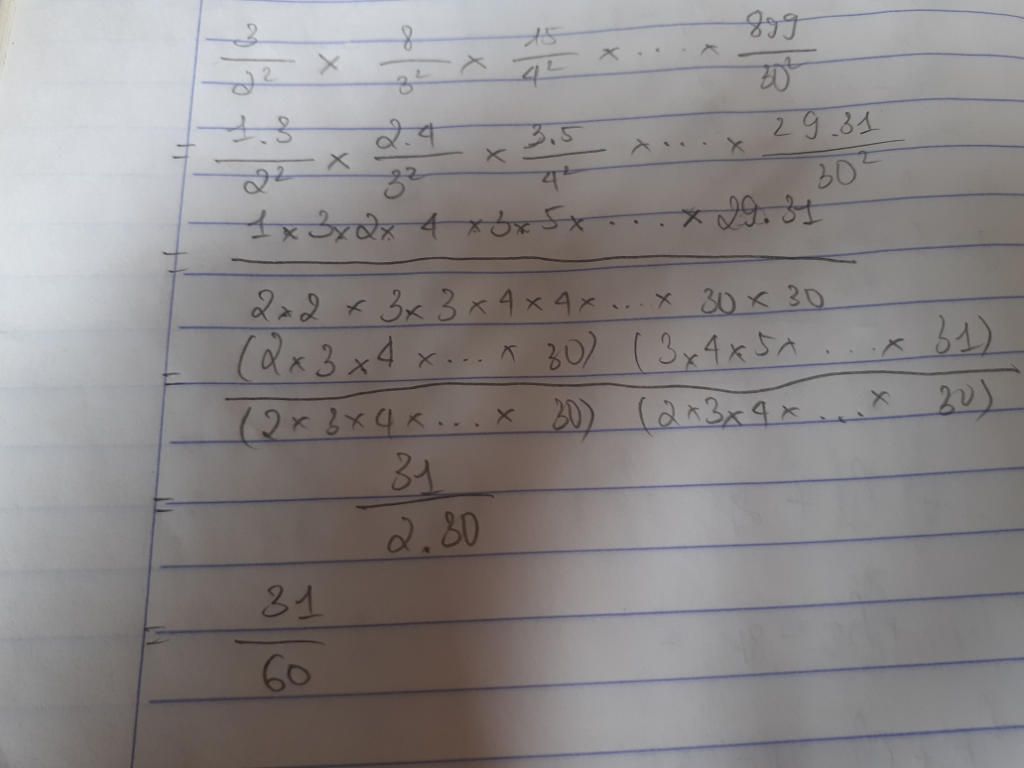 3/2² × 8/3² × 15/4² × .... × 899/30²
= 1.3/2² × 2.4/3² × 3.5/4² × .... × 29.31/30²
= 1×3×2×4×3×5×....×29.31 / 2×2×3×3×4×4×...×30×30
= (2×3×4×...×30) (3×4×5×....×31) / (2×3×4×...×30) (2×3×4×....×30)
= 31/2.30
= 31/60